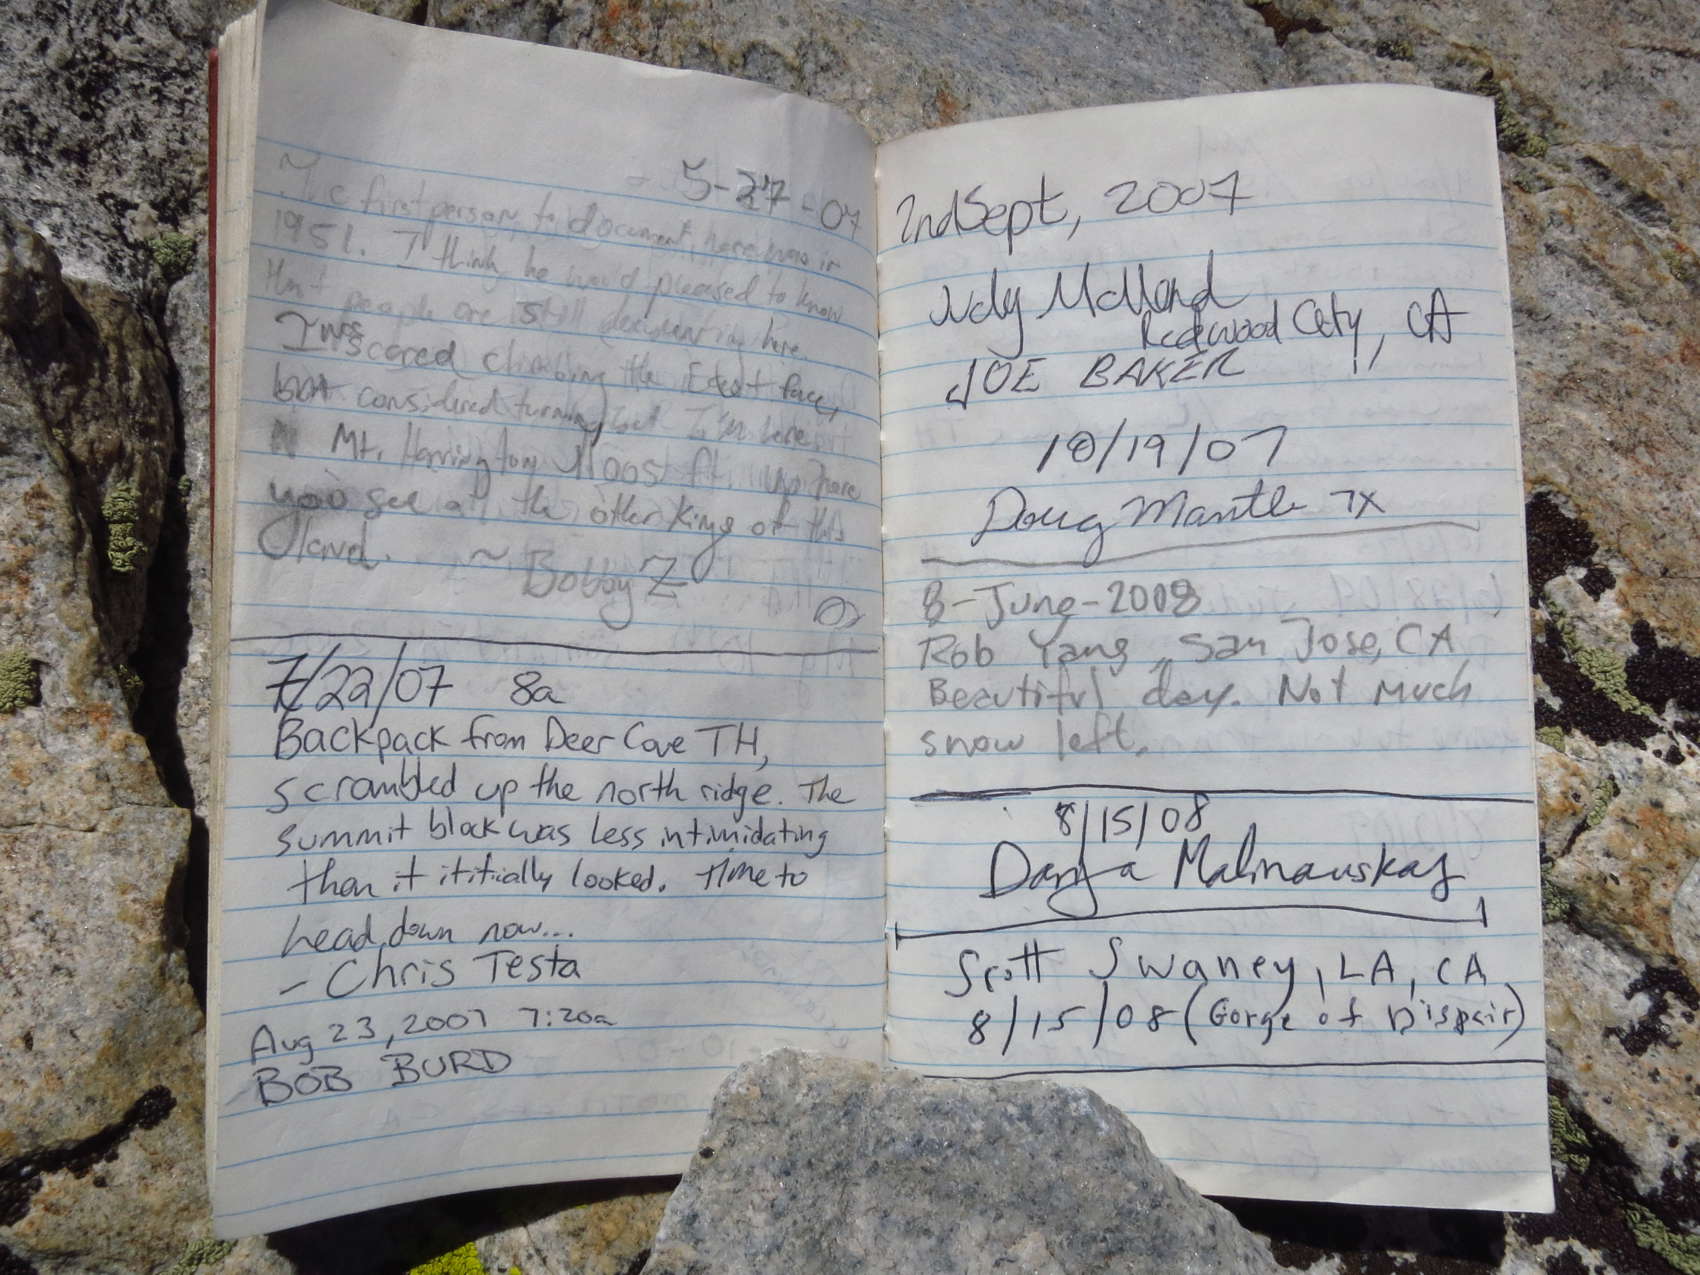 5-27-07
The first person to document here was in
1951. I think he would pleased to know
that people are still documenting here.
I was scared climbing the East face,
considered turning but I'm here
Mt. Harrington 11005 ft. up here
you see all the other Kings of this
land. ~ Bobby Z
7/22/07 8a
Backpack from Deer Cove TH,
scrambled up the north ridge. The
summit block was less intimidating
than it ititially looked. Time to
head down now...
- Chris Testa
Aug 23, 2007 7:20a
BOB BURD
2nd Sept, 2007
Judy
Redwood City, CA
JOE BAKER
10/19/07
Doug Mantle 7X
8-June-2008
Rob Yang, San Jose, CA
Beautiful day. Not much
snow left.
8/15/08
Malinauskas
Scott Swaney, LA, CA
8/15/08 (Gorge of Dispair)